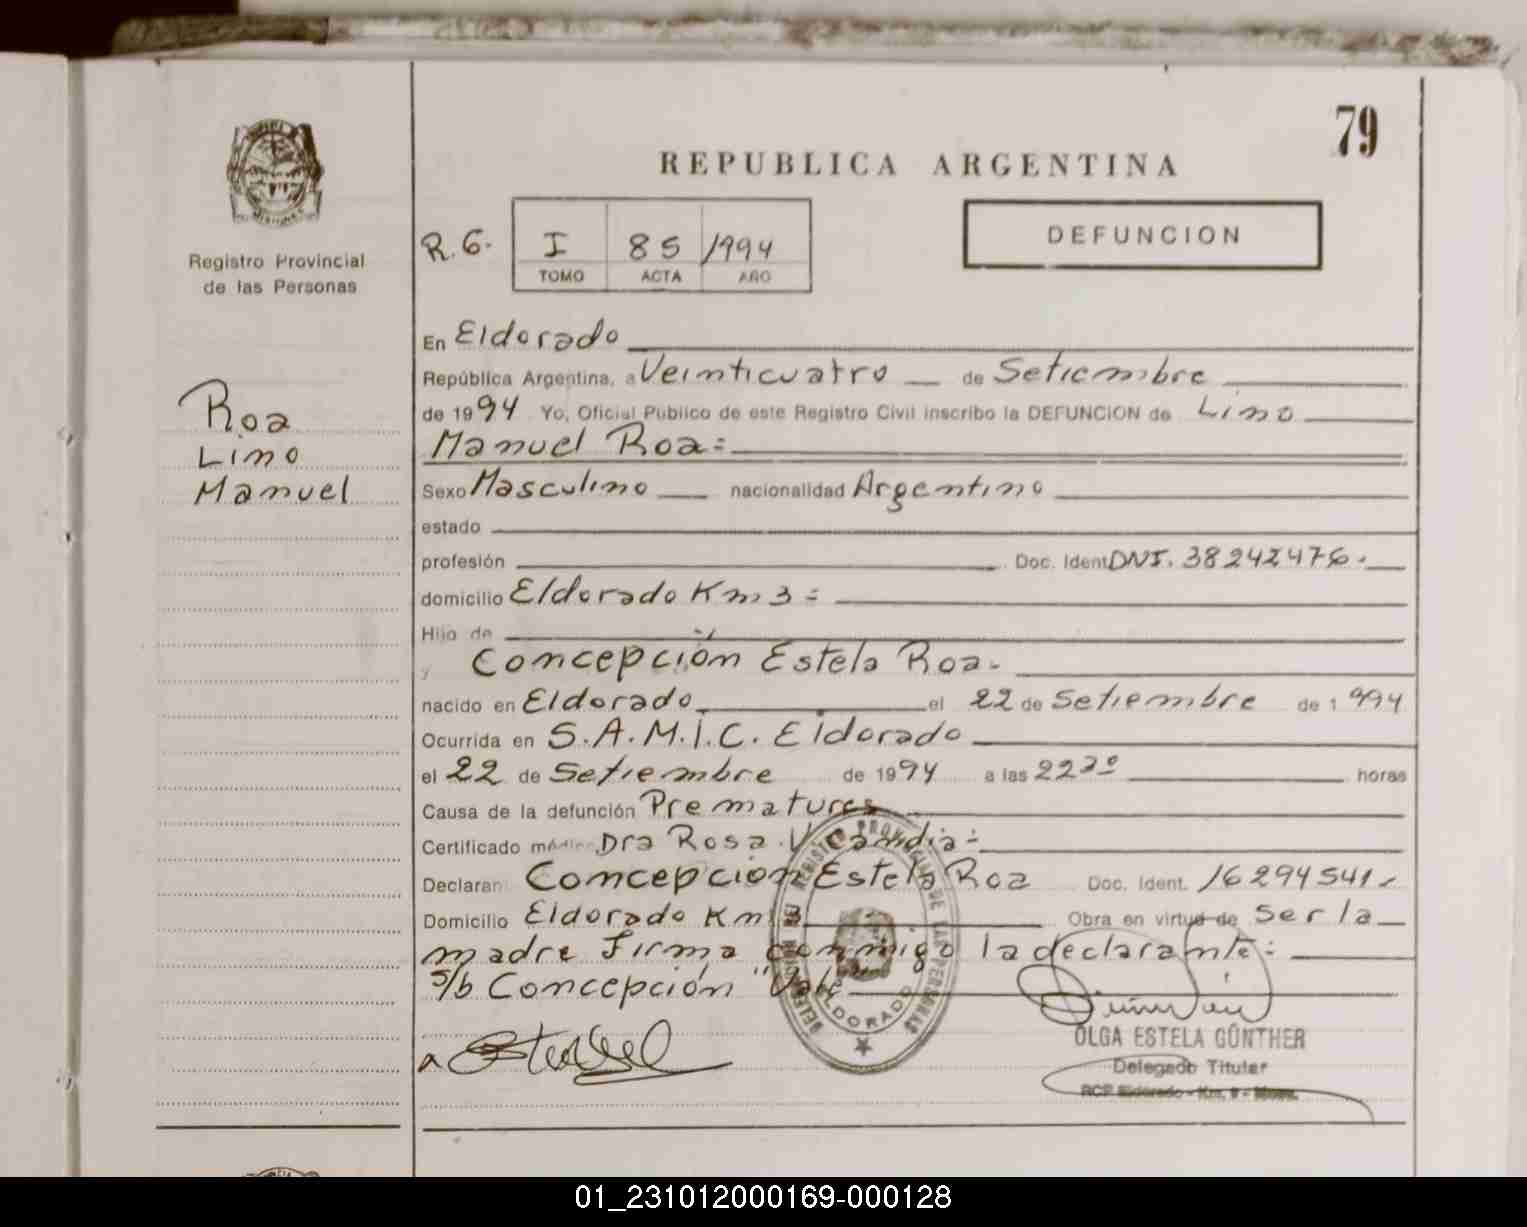 79
REPUBLICA ARGENTINA
R.G. I 85 1994
TOMO ACTA AÑO
DEFUNCION
MISIONES
Registro Provincial
de las Personas
Roa
Lino
Manuel
En Eldorado
República Argentina, a Veinticuatro de Setiembre
de 1994 Yo, Oficial Público de este Registro Civil inscribo la DEFUNCION de Lino
Manuel Roa=
Sexo Masculino nacionalidad Argentino
estado
profesión Doc. Ident DNI. 38242476.
domicilio Eldorado Km 3=
Hijo de
y Concepción Estela Roa.
nacido en Eldorado el 22 de Setiembre de 1994
Ocurrida en S.A.M.I.C. Eldorado
el 22 de Setiembre de 1994 a las 22³⁰ horas
Causa de la defunción Prematurez
Certificado médico Dra Rosa V Candia=
Declaran Concepción Estela Roa Doc. Ident. 16294541.
Domicilio Eldorado Km Obra en virtud de Ser la
madre firma conmigo la declarante=
s/b Concepción "Vale
DELEGACION DEL REGISTRO PROVINCIAL DE LAS PERSONAS
ELDORADO
OLGA ESTELA GÜNTHER
Delegado Titular
RCP Eldorado - Km. 9 - Mnes.
01_231012000169-000128